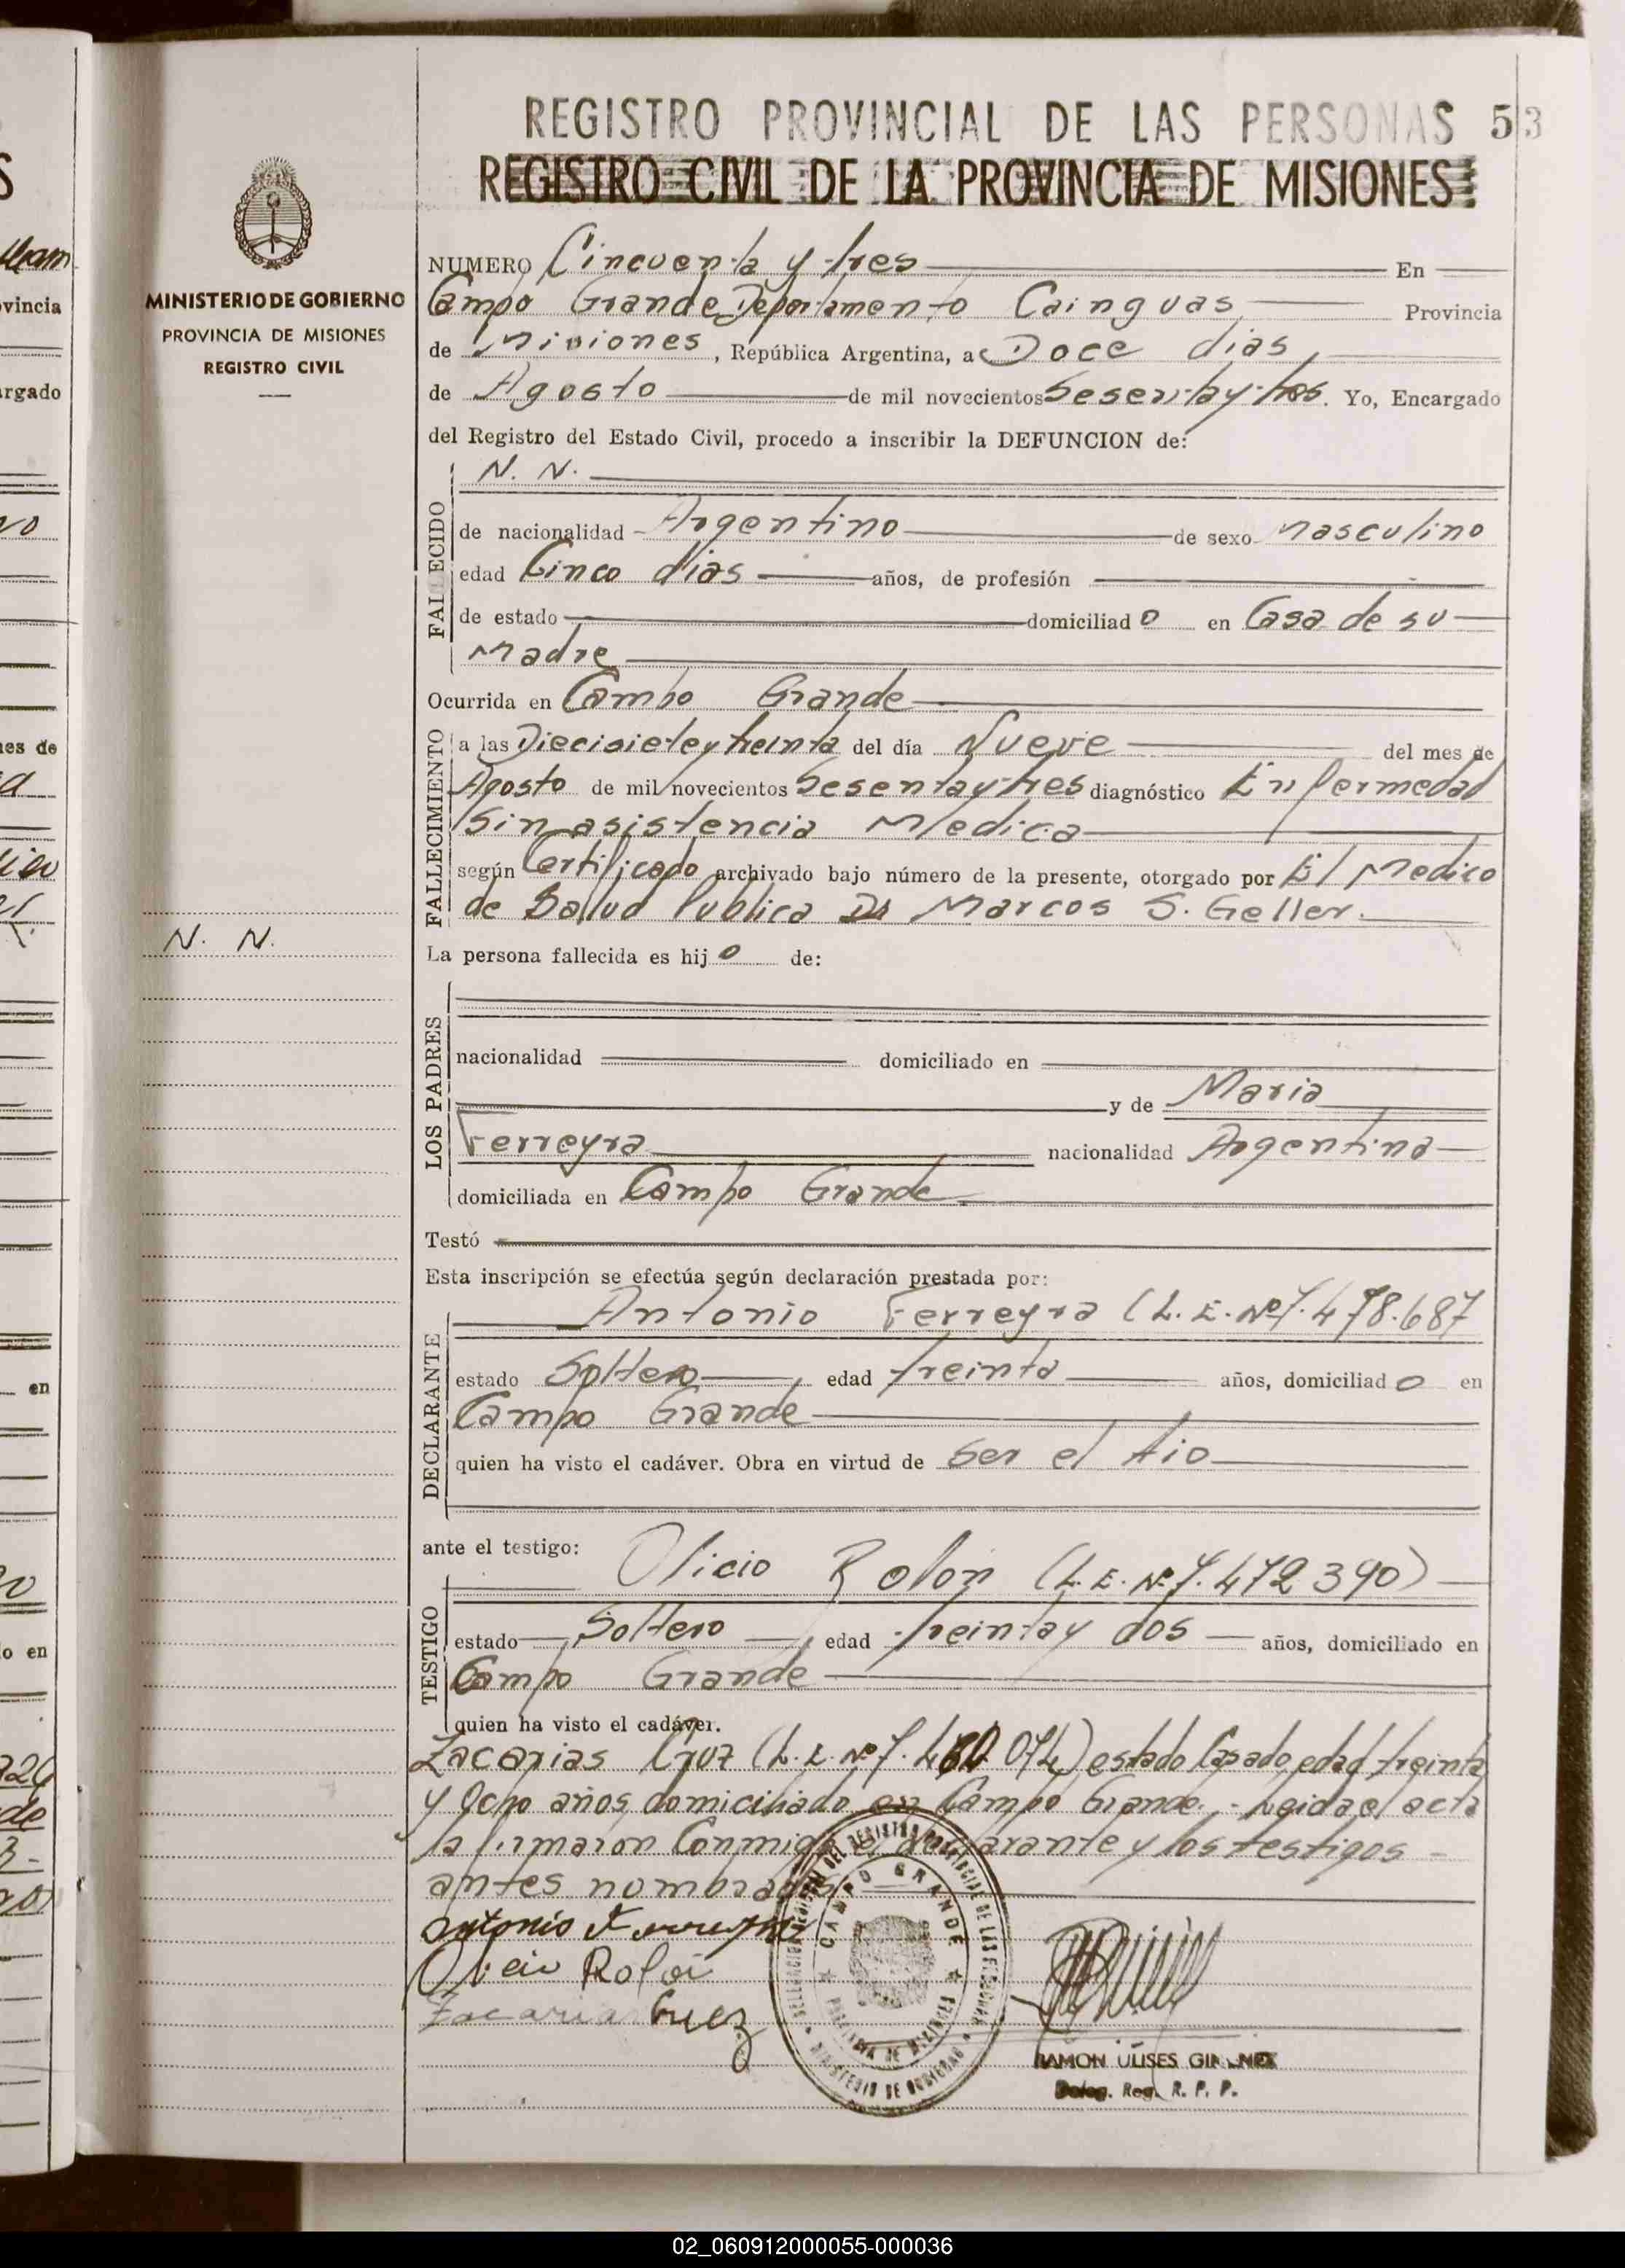 REGISTRO PROVINCIAL DE LAS PERSONAS 53
REGISTRO CIVIL DE LA PROVINCIA DE MISIONES
MINISTERIO DE GOBIERNO
PROVINCIA DE MISIONES
REGISTRO CIVIL
N. N.
NUMERO Cincuenta y tres En
Campo Grande Departamento Cainguas Provincia
de Misiones, República Argentina, a Doce dias
de Agosto de mil novecientos Sesentaytres. Yo, Encargado
del Registro del Estado Civil, procedo a inscribir la DEFUNCION de:
FALLECIDO
N. N.
de nacionalidad Argentino de sexo masculino
edad Cinco dias años, de profesión
de estado domiciliado en Casa de su
Madre
Ocurrida en Campo Grande
FALLECIMIENTO
a las Diecisieteytreinta del día Nueve del mes de
Agosto de mil novecientos Sesentaytres diagnóstico Enfermedad
Sin asistencia Medica
según Certificado archivado bajo número de la presente, otorgado por El Medico
de Salud Publica Dr Marcos S. Geller.
La persona fallecida es hijo de:
LOS PADRES
nacionalidad domiciliado en
y de Maria
Ferreyra nacionalidad Argentina
domiciliada en Campo Grande
Testó
Esta inscripción se efectúa según declaración prestada por:
DECLARANTE
Antonio Ferreyra (L. E. Nº 7.478.687
estado Soltero, edad treinta años, domiciliado en
Campo Grande
quien ha visto el cadáver. Obra en virtud de Ser el tio
ante el testigo:
TESTIGO
Olicio Rolon (L. E. Nº 7.472390)
estado Soltero, edad treintay dos años, domiciliado en
Campo Grande
quien ha visto el cadáver.
Zacarias Cruz (L. E. Nº 7. 074) estado Casado, edad treinta
y Ocho años, domiciliado en Campo Grande.- Leida el acta
la firmaron Conmigo el declarante y los testigos -
antes nombrados
Antonio Ferreyra
Olicio Rolon
Zacaria Cruz
CAMPO GRANDE
PROVINCIA DE MISIONES
MINISTERIO DE GOBIERNO
RAMON ULISES GIMENEZ
Deleg. Reg. R. P. P.
02_060912000055-000036